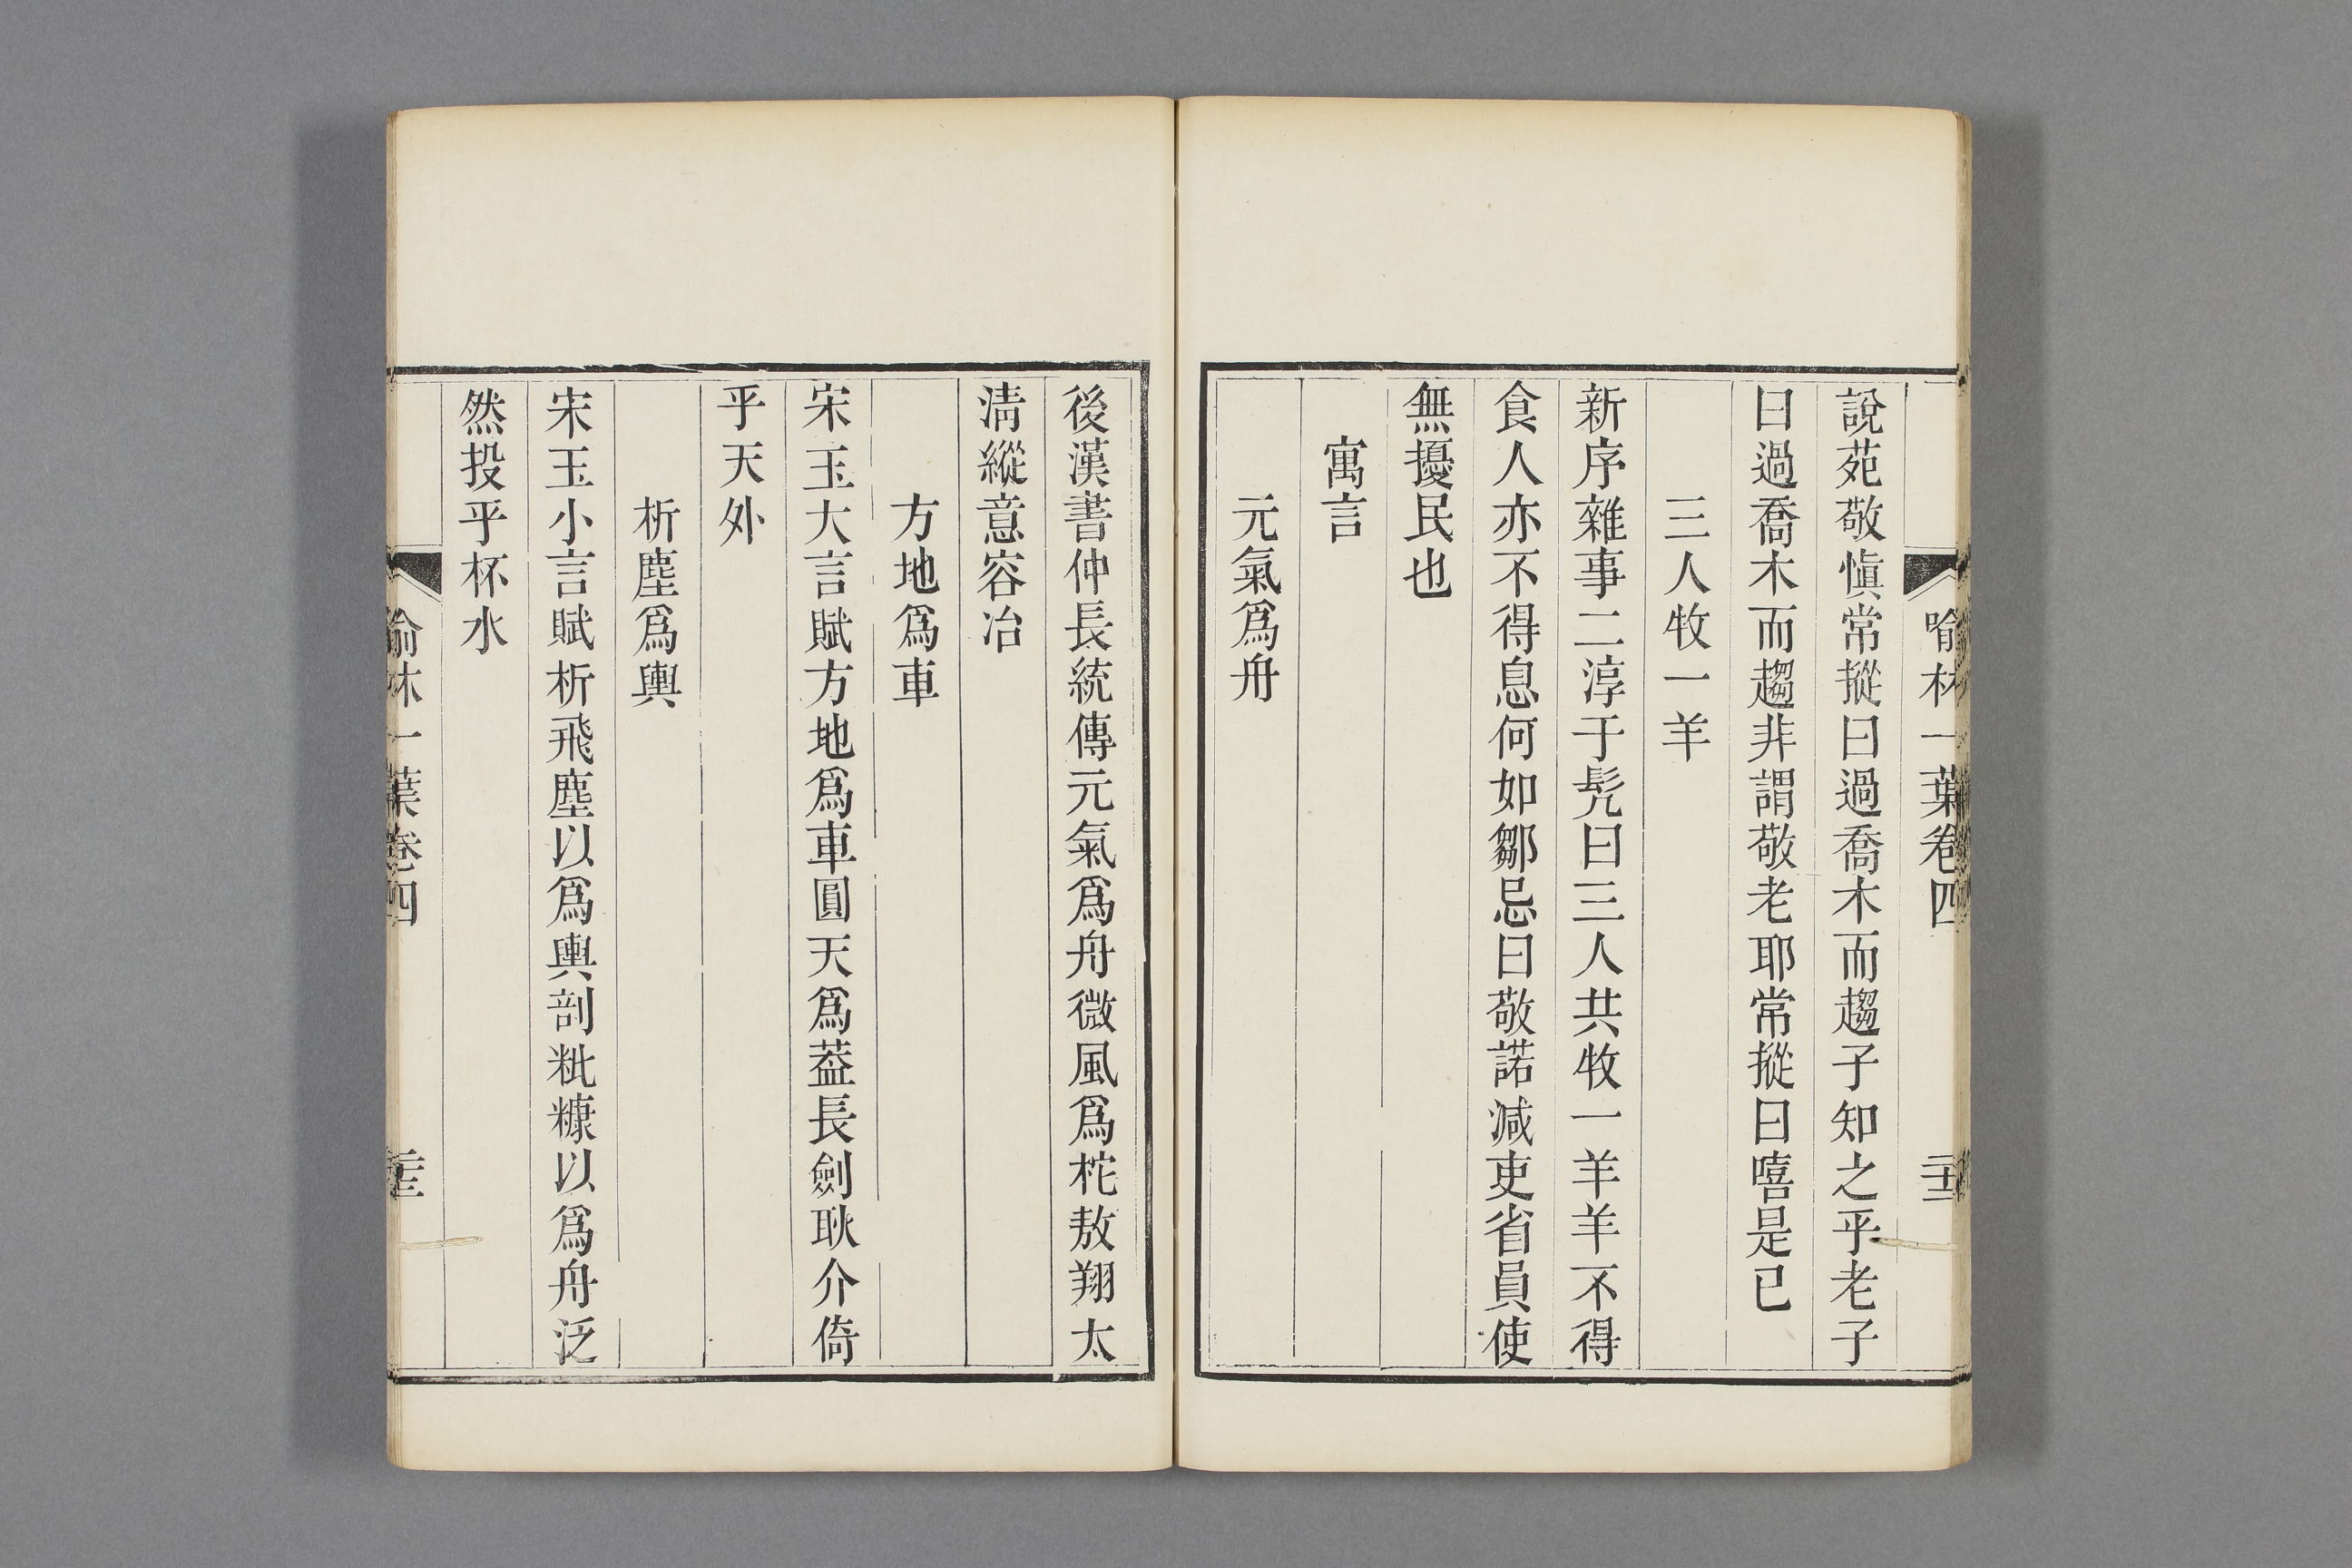 喻林一葉卷四
二十二
說苑敬愼常摐曰過喬木而趨子知之乎老子
曰過喬木而趨非謂敬老耶常摐曰嘻是已
三人牧一羊
新序雜事二淳于髠曰三人共牧一羊羊不得
食人亦不得息何如鄒忌曰敬諾減吏省員使
無擾民也
寓言
元氣爲舟
後漢書仲長統傳元氣爲舟微風爲柁敖翔太
淸縱意容冶
方地爲車
宋玉大言賦方地爲車圓天爲葢長劍耿介倚
乎天外
析塵爲輿
宋玉小言賦析飛塵以爲輿剖粃糠以爲舟泛
然投乎杯水
喻林一葉卷四